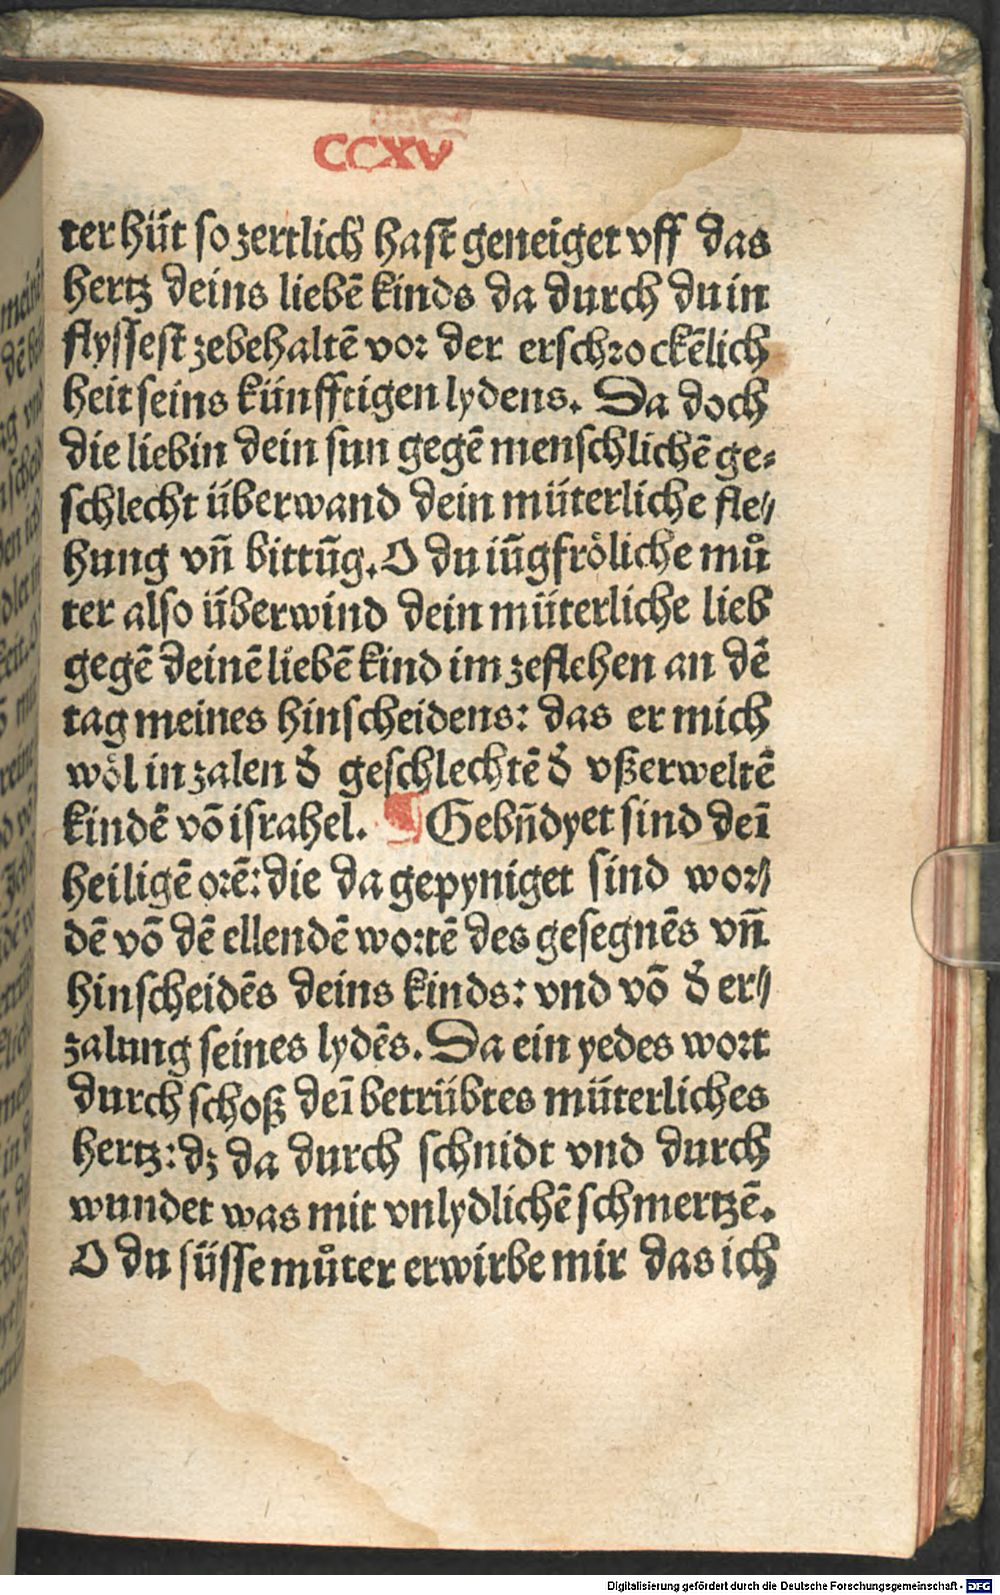 CCXV
ter hüt so zertlich hast geneiget vff das
hertz deins liebē kinds da durch du in
flyssest zebehaltē vor der erschrockēlich
heit seins künfftigen lydens. Da doch
die lieb in dein sun gegē menschlichē ge⸗
schlecht überwand dein müterliche fle⸗
hung vn̄ bittūg. O du iūgfröliche mů
ter also überwind dein müterliche lieb
gegē deinē liebē kind im zeflehen an dē
tag meines hinscheidens: das er mich
wöl in zalen d̉ geschlechtē d̉ vßerweltē
kindē vō israhel. ¶ Gebn̄dyet sind deī
heiligē orē: die da gepyniget sind wor⸗
dē vō dē ellendē wortē des gesegnēs vn̄
hinscheidēs deins kinds: vnd vō d̉ er⸗
zalung seines lydēs. Da ein yedes wort
durch schoß deī betrübtes müterliches
hertz: dz da durch schnidt vnd durch
wundet was mit vnlydlichē schmertzē.
O du süsse můter erwirbe mir das ich
Digitalisierung gefördert durch die Deutsche Forschungsgemeinschaft - DFG